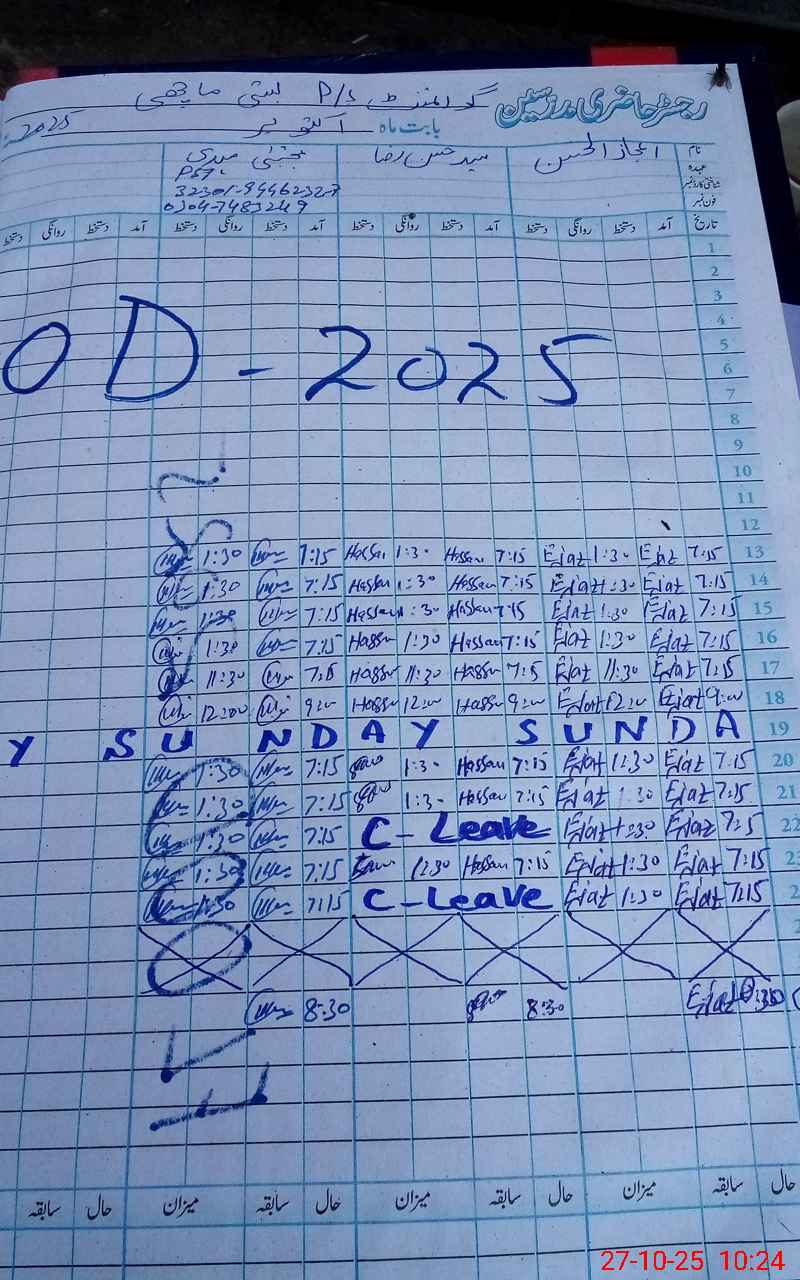 رجسٹر حاضری مدرسین گورنمنٹ P/S بستی ماچھی
بابت ماہ اکتوبر 2025
نام اعجاز الحسن سید حسن رضا مجتبیٰ مہدی
عہدہ PST
شناختی کارڈ نمبر
فون نمبر 0304-7483249
تاریخ آمد دستخط روانگی دستخط آمد دستخط روانگی دستخط آمد دستخط روانگی دستخط آمد دستخط روانگی دستخط
1
2
3
4
5
OD-2025
6
7
8
9
10
11
12
1:30 7:15 Hassan 1:30 Hassan 7:15 Ejaz 1:30 Ejaz 7:15 13
1:30 7:15 Hassan 1:30 Hassan 7:15 Ejaz 1:30 Ejaz 7:15 14
1:30 7:15 Hassan 1:30 Hassan 7:15 Ejaz 1:30 Ejaz 7:15 15
1:30 7:15 Hassan 1:30 Hassan 7:15 Ejaz 1:30 Ejaz 7:15 16
11:30 7:15 Hassan 11:30 Hassan 7:15 Ejaz 11:30 Ejaz 7:15 17
12:00 9:00 Hassan 12:00 Hassan 9:00 Ejaz 12:00 Ejaz 9:00 18
Y SUNDAY SUNDA 19
1:30 7:15 1:30 Hassan 7:15 Ejaz 1:30 Ejaz 7:15 20
1:30 7:15 1:30 Hassan 7:15 Ejaz 1:30 Ejaz 7:15 21
1:30 7:15 C-Leave Ejaz 1:30 Ejaz 7:15 22
1:30 7:15 1:30 Hassan 7:15 Ejaz 1:30 Ejaz 7:15 23
1:30 7:15 C-Leave Ejaz 1:30 Ejaz 7:15
8:30 8:30 Ejaz 8:30
حال سابقہ میزان حال سابقہ میزان حال سابقہ میزان حال سابقہ
27-10-25 10:24